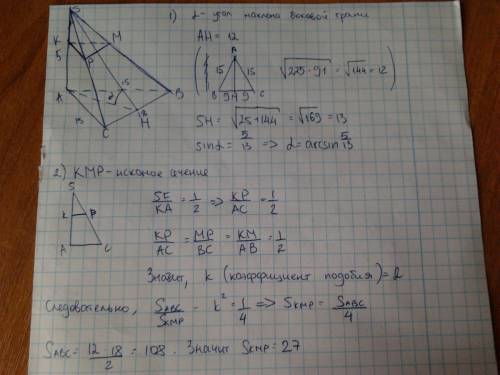 1) α - угол наклона боковой грани
S
K
M
5
P
A
15
α
B
15
12
H
C
AH = 12
A
15 15
B 9 H 9 C
√225-91 = √144 = 12
SH = √25+144 = √169 = 13
sinα = 5/13 => α = arcsin 5/13
2) KMP - искомое сечение
S
K P
A C
SK/KA = 1/2 => KP/AC = 1/2
KP/AC = MP/BC = KM/AB = 1/2
Значит, k (коэффициент подобия) = 2
Следовательно, SABC/SKMP = k² = 1/4 => SKMP = SABC/4
SABC = 12·18/2 = 108. Значит SKMP = 27